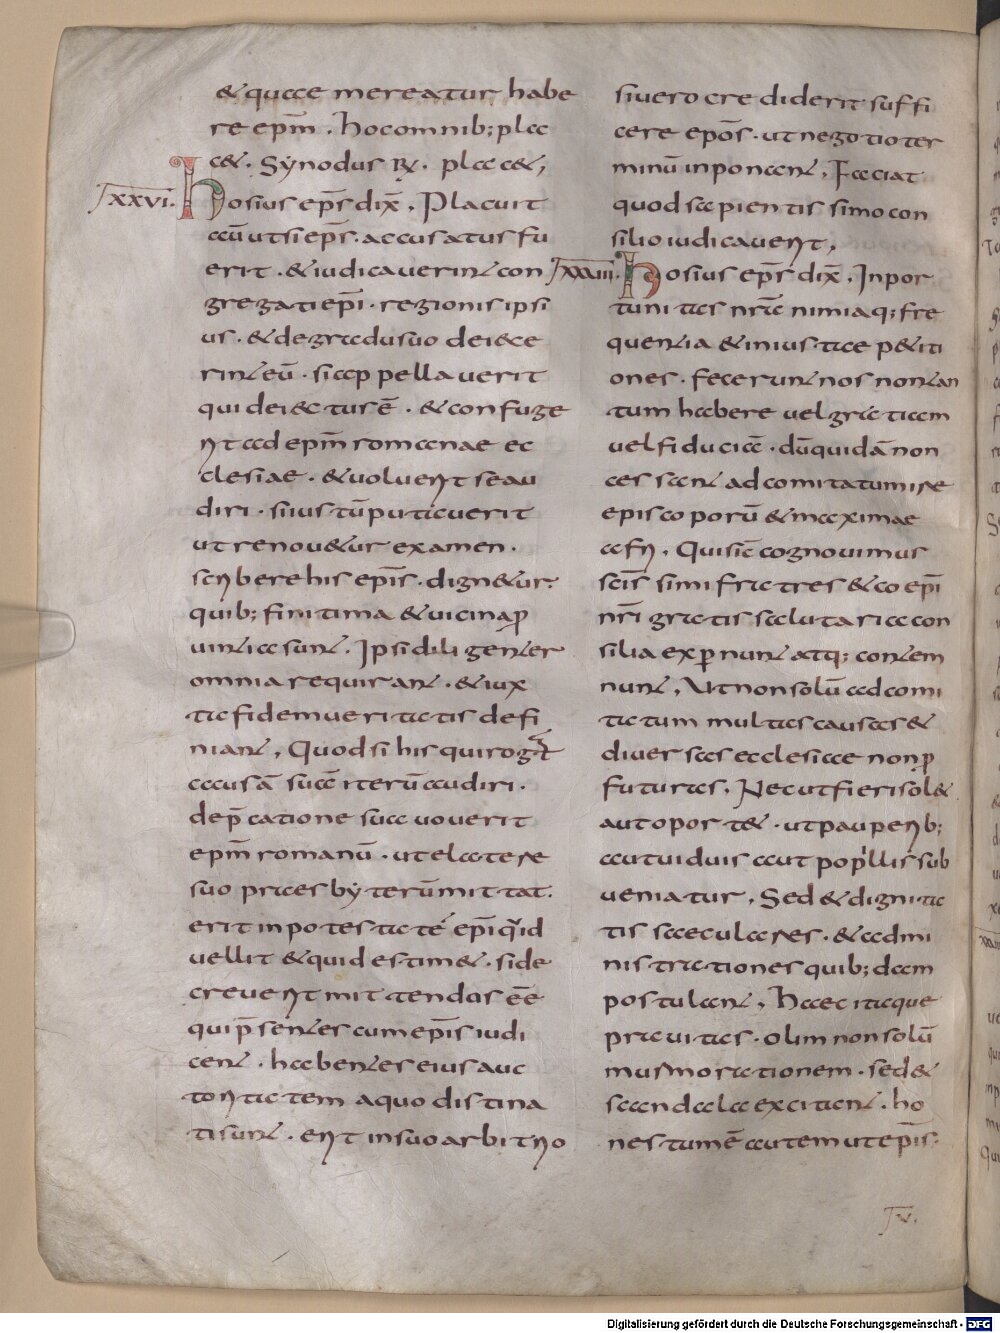 & quae mereatur habe
re epm̄. hoc omnib; pla
c&. Synodus Rx. placc&;
Ixxvi. hosius ep̄s dix̄. Placuit
aū ut si ep̄s. accusatus fu
erit. & iudicaverint con
gregati ep̄i. regionis ipsi
us. & de gradu suo deiece
rint eū. si appellaverit
qui deiectus ē. & confuge
rit ad epm̄ romanae ec
clesiae. & voluerit se au
diri. si ius tū putaverit
ut renov&ur examen.
scribere his ep̄is. dign&ur.
quib; finitima & vicina p
vintia sunt. Ipsi diligenter
omnia requirant. & iux
ta fidem veritatis defi
niant. Quod si his qui rogat
accusā suā iterū audiri.
dep̄catione sua voverit
epm̄ romanū. ut e latere
suo praesbyterū mittat.
erit in potestate ep̄i quid
vellit & quid estim&. si de
creverit mittendos eē
qui p̄sentes cum ep̄is iudi
cent. habentes eius auc
toritatem a quo distina
ti sunt. erit in suo arbitrio
si vero crediderit suffi
cere epōs. ut negotio ter
minū inponant. Faciat
quod sapientissimo con
silio iudicaverit.
Ixxviii. hosius ep̄s dix̄. Inpor
tunitas nrāe nimia q; fre
quentia & iniustae p&iti
ones. fecerunt nos non tan
tum habere vel gratiam
vel fiduciā. dū quidā non
cessant ad comitatum ire
episcoporū & maximae
afri. Qui sic̄ cognovimus
scīssimi fratres & coep̄i
nr̄i gratis salutaria con
silia expnunt atq; contem
nunt. Ut non solū ad comi
tatum multas causas &
diversas ecclesiae non p
futuras. Nec ut fieri sol&
aut oport&. ut pauperib;
aut viduis aut popillis sub
veniatur. Sed & dignita
tis saeculares. & admi
nistrationes quib; dam
postulant. Haec itaque
pravitas. olim non solū
musmorationem. sed &
scandala excitant. ho
nestum ē autem ut ep̄is.
Iv.
Digitalisierung gefördert durch die Deutsche Forschungsgemeinschaft - DFG